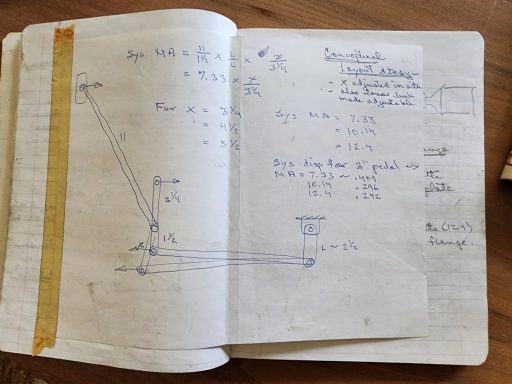 Sys MA = 11/1½ × L/L × x/3¼
= 7.33 × x/3¼
For X = 3¼
= 4½
= 5½
Conceptual
Layout & Design
- X adjusted in site
- also lower link
made adjustable
Sys MA = 7.33
= 10.14
= 12.4
Sys disp for 3" pedal →
MA = 7.33 ~ .409
10.14 .296
12.4 .242
11
3¼
1½
x
L ~ 2½
the
plate
(12.9)
flange.